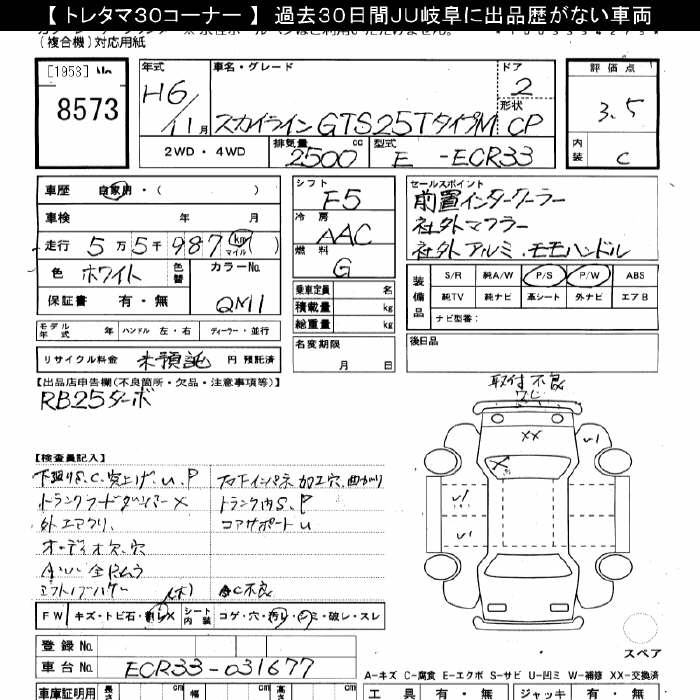 【 トレタマ30コーナー 】 過去30日間JU岐阜に出品歴がない車両
(複合機)対応用紙
[1953]
8573
年式 H6/11月
車名・グレード スカイライン GTS25TタイプM
ドア 2
形状 CP
評価点 3.5
内装 C
2WD・4WD 排気量 2500 cc 型式 E -ECR33
車歴 自家用・( )
車検 年 月
走行 5万5千987 km マイル
色 ホワイト 色替 カラーNo. QM1
保証書 有・無
モデル年式 年 ハンドル 左・右 ディーラー・並行
リサイクル料金 未預託 円 預託済
シフト F5
冷房 AAC
燃料 G
乗車定員 名
積載量 kg
総重量 kg
名変期限 月 日
セールスポイント
前置インタークーラー
社外マフラー
社外アルミ.モモハンドル
装備品
S/R 純A/W P/S P/W ABS
純TV 純ナビ 革シート 外ナビ エアB
ナビ型番:
後日品
【出品店申告欄(不良箇所・欠品・注意事項等)】
RB25ターボ
取付不良
ワレ
【検査員記入】
トランク内S、P
コアサポートU
外エアクリ、
オーディオ欠、穴
AC不良
FW キズ・トビ石・割レX シート内装 コゲ・穴・汚レ・シミ・破レ・スレ
XX
U1
U1
U1
X
スペア
登録No.
車台No. ECR33-031677
A-キズ C-腐食 E-エクボ S-サビ U-凹ミ W-補修 XX-交換済
車庫証明用 長さ cm 幅 cm 高さ cm
工具 有・無 ジャッキ 有・無